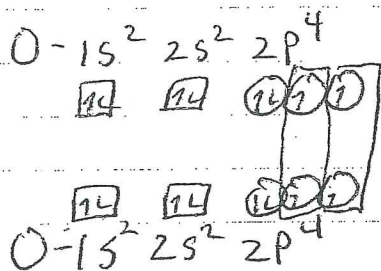 O - 1s² 2s² 2p⁴
1L 1L 1L 1 1
1L 1L 1L 1 1
O - 1s² 2s² 2p⁴